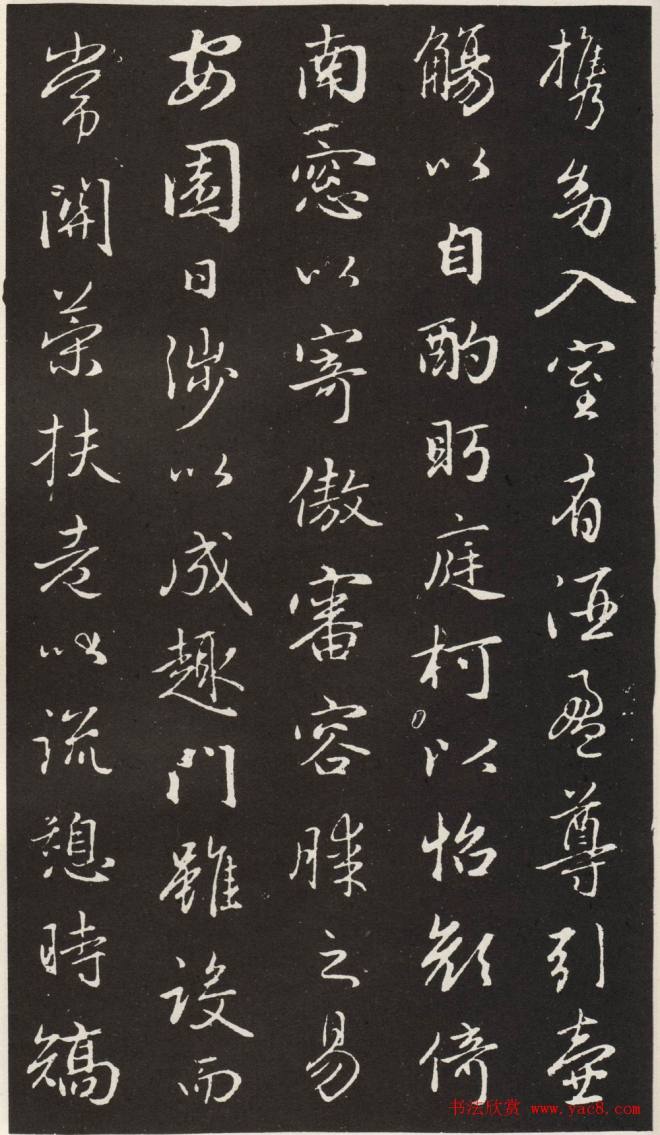 攜幼入室有酒盈尊引壺
觴以自酌眄庭柯以怡顏倚
南窓以寄傲審容膝之易
安園日涉以成趣門雖設而
常關策扶老以流憩時矯
书法欣赏 www.yac8.com